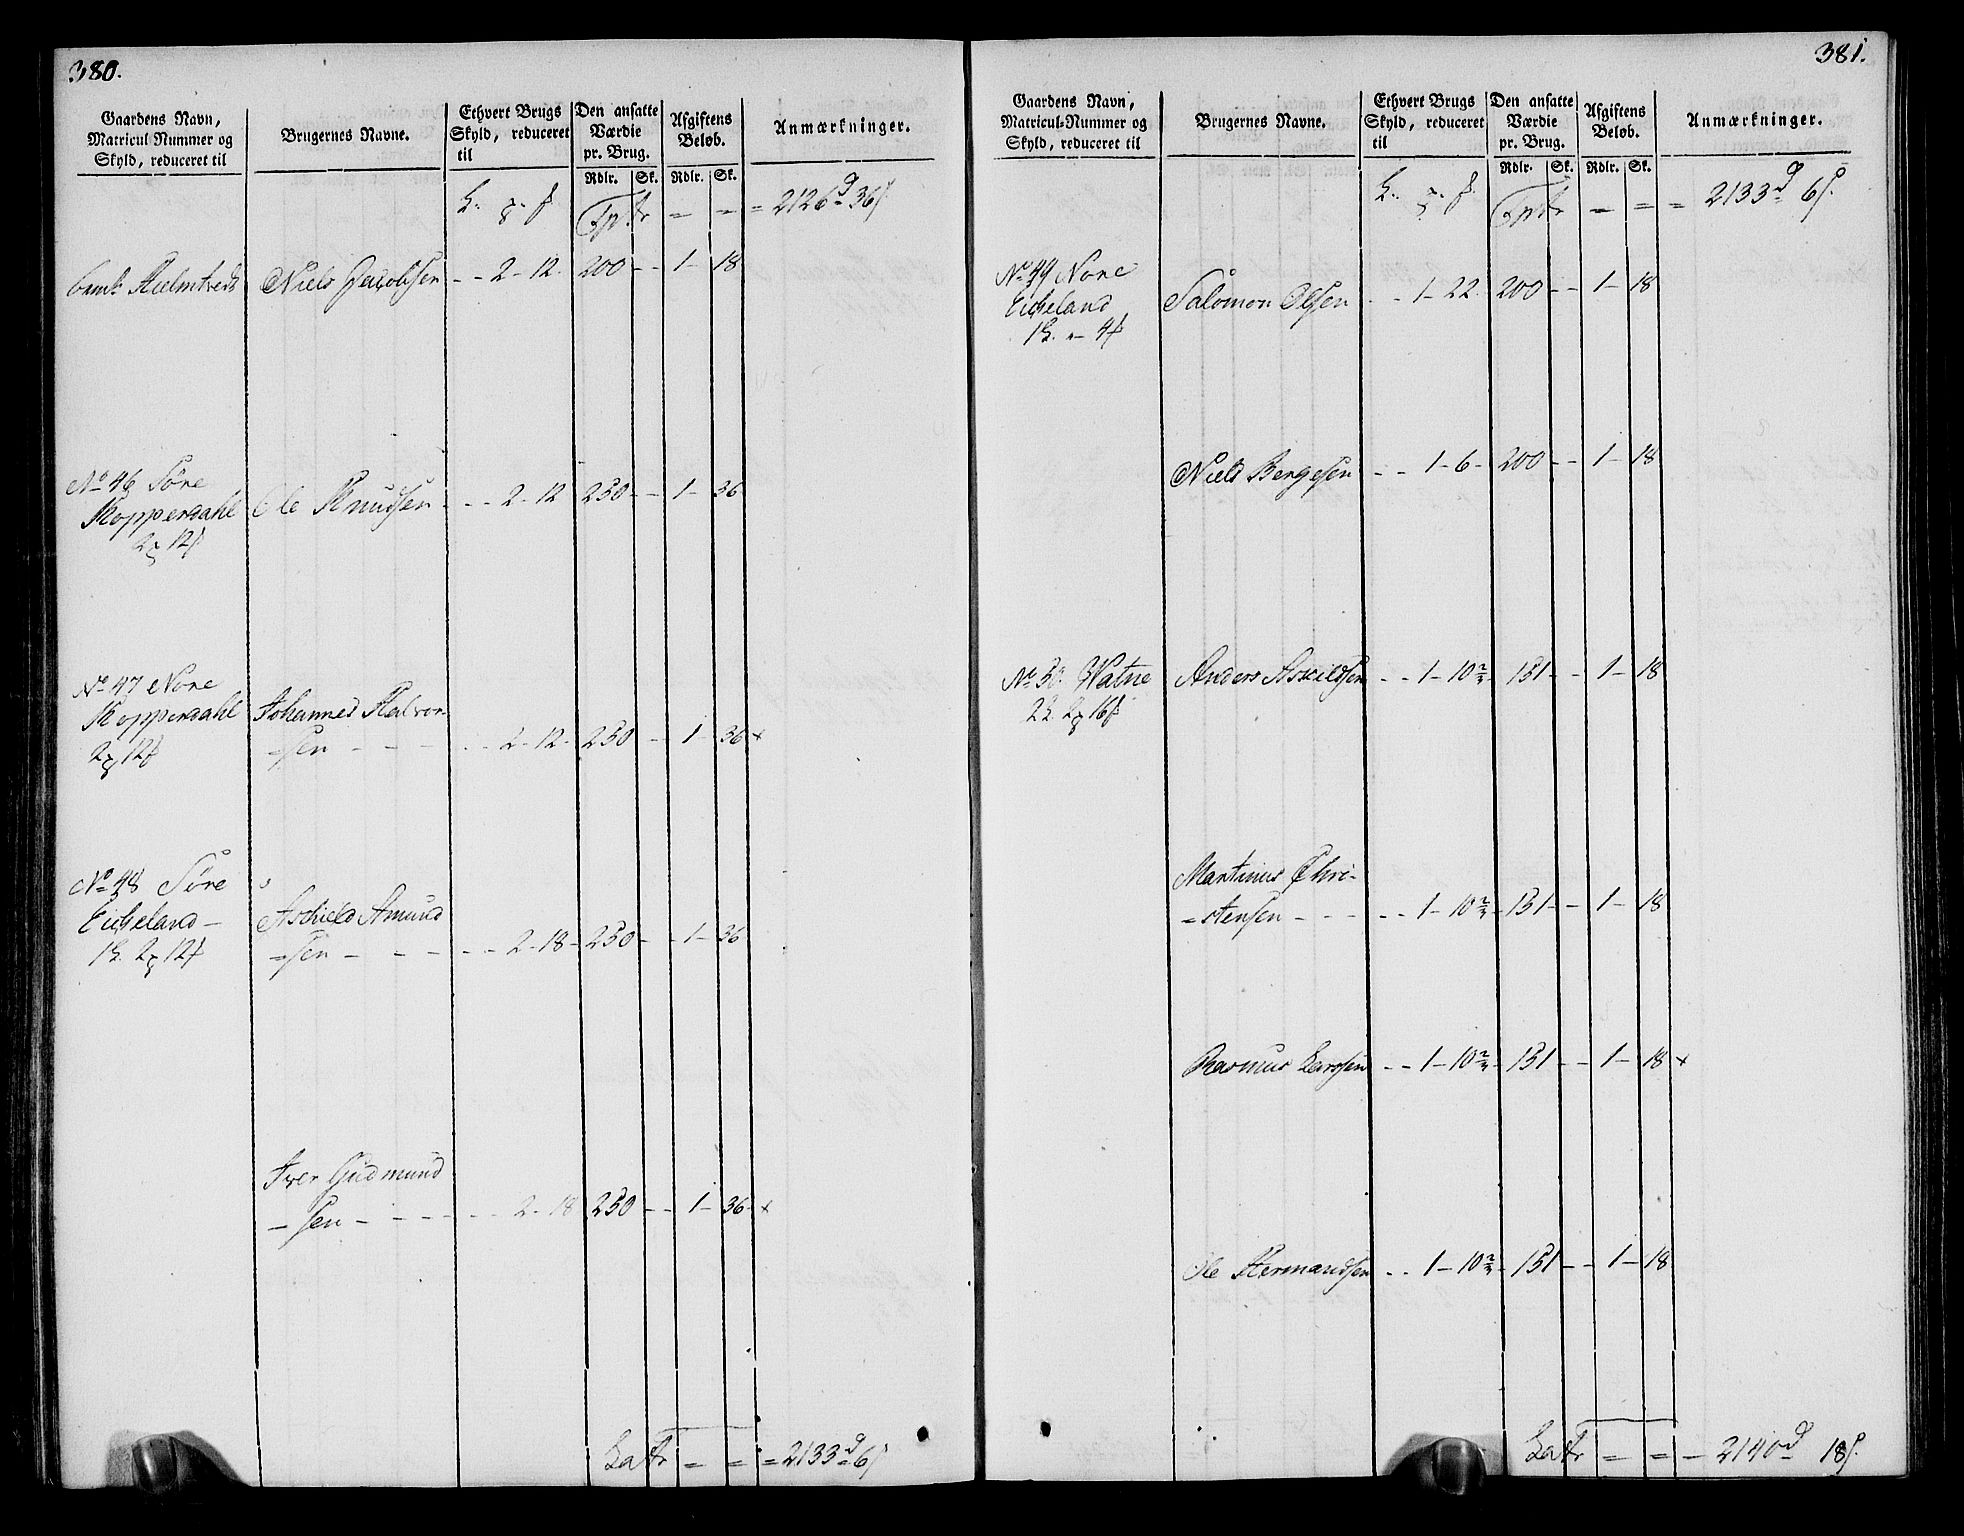 380.
Gaardens Navn, Matricul-Nummer og Skyld, reduceret til
Brugernes Navne.
Ethvert Brugs Skyld, reduceret til
Den ansatte Værdie pr. Brug.
Afgiftens Beløb.
Anmærkninger.
Rdlr. Sk. Rdlr. Sk.
Tptr = = = 2126 d 36 s
Niels Jacobsen - - 2 - 12. 200 - - 1 - 18
No 46 Søre
Kopperdahl Ole Knudsen - - 2 - 12 250 - - 1 - 36
2 12
No 47 Nore
Kopperdahl Johannes Halvor-
2 12 =sen - - - - 2 - 12 - 250 - - 1 - 36 x
No 48 Søre
Eicheland - Aschield Amund
2 12 =sen - - - - 2 - 18 - 250 - - 1 - 36
Iver Gudmund
=sen - - - - - 2 - 18 250 - - 1 - 36 x
Latr = = = 2133 d 6 s
381.
Gaardens Navn, Matricul-Nummer og Skyld, reduceret til
Brugernes Navne.
Ethvert Brugs Skyld, reduceret til
Den ansatte Værdie pr. Brug.
Afgiftens Beløb.
Anmærkninger.
Rdlr. Sk. Rdlr. Sk.
Tptr = = = 2133 d 6 s
No 49 Nore
Eicheland Salomon Olsen - - 1 - 22 200 - - 1 - 18
Niels Bergesen - - 1 - 6 - 200 - - 1 - 18
No 50 Watne Anders Askildsen - - 1 - 10 2/3 - 151 - - 1 - 18
2 16
Martinus Chri-
=stensen - - - - 1 - 10 2/3 - 151 - - 1 - 18
Rasmus Larssen - - 1 - 10 2/3 - 151 - - 1 - 18 x
Ole Hermandsen - - 1 - 10 2/3 - 151 - - 1 - 18
Latr = = - 2140 d 18 s